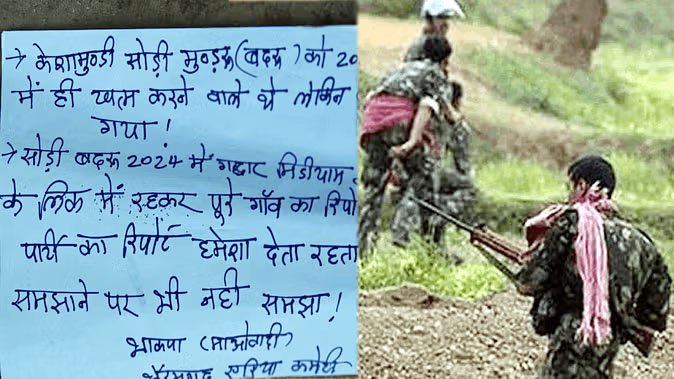 → केशामुण्डी सोड़ी मुण्ड़रू (बदरू) को 20
में ही खत्म करने वाले थे लेकिन
गया!
→ सोड़ी बदरू 2024 में गद्दार मिडीयाम
के लिंक में रहकर पूरे गाँव का रिपो
पार्टी का रिपोर्ट हमेशा देता रहता
समझाने पर भी नही समझा!
भाकपा (माओवादी)
भैरमगढ़ एरिया कमेटी